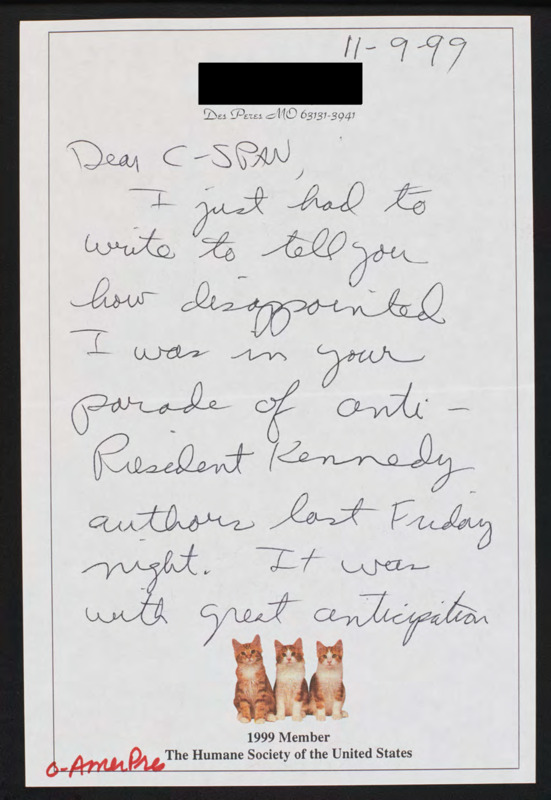 11-9-99
Des Peres MO 63131-3941
Dear C-SPAN,
I just had to
write to tell you
how disappointed
I was in your
parade of anti-
President Kennedy
authors last Friday
night. It was
with great anticipation
1999 Member
The Humane Society of the United States
o-AmerPres